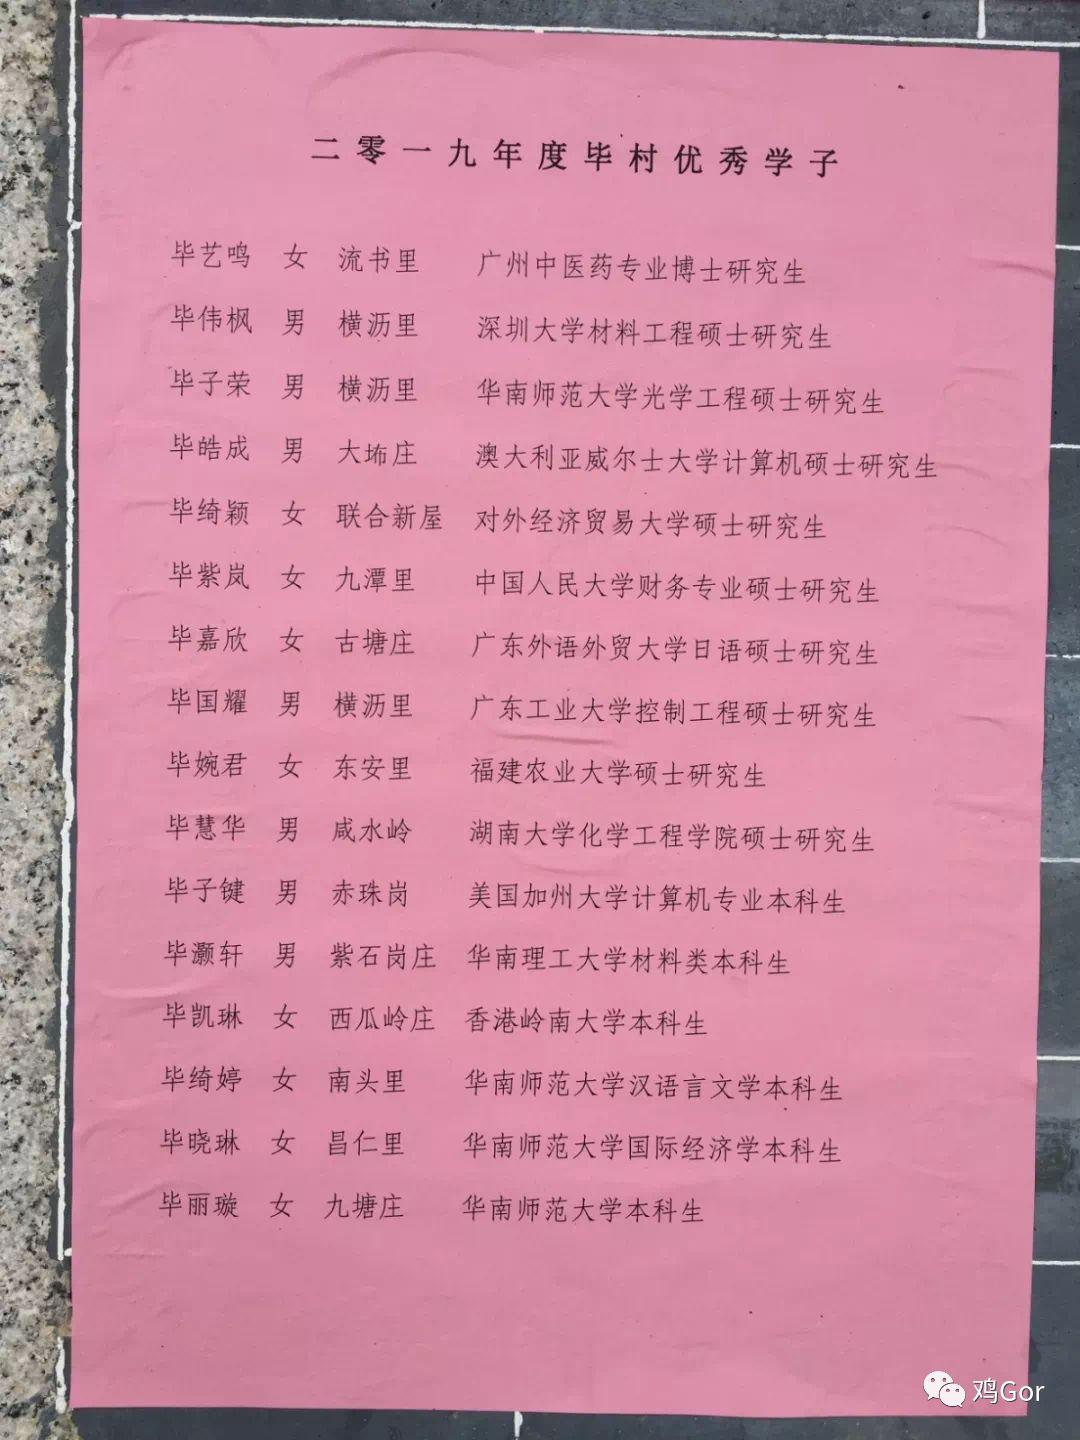 二零一九年度毕村优秀学子
毕艺鸣 女 流书里 广州中医药专业博士研究生
毕伟枫 男 横沥里 深圳大学材料工程硕士研究生
毕子荣 男 横沥里 华南师范大学光学工程硕士研究生
毕皓成 男 大㘵庄 澳大利亚威尔士大学计算机硕士研究生
毕绮颖 女 联合新屋 对外经济贸易大学硕士研究生
毕紫岚 女 九潭里 中国人民大学财务专业硕士研究生
毕嘉欣 女 古塘庄 广东外语外贸大学日语硕士研究生
毕国耀 男 横沥里 广东工业大学控制工程硕士研究生
毕婉君 女 东安里 福建农业大学硕士研究生
毕慧华 男 咸水岭 湖南大学化学工程学院硕士研究生
毕子键 男 赤珠岗 美国加州大学计算机专业本科生
毕灏轩 男 紫石岗庄 华南理工大学材料类本科生
毕凯琳 女 西瓜岭庄 香港岭南大学本科生
毕绮婷 女 南头里 华南师范大学汉语言文学本科生
毕晓琳 女 昌仁里 华南师范大学国际经济学本科生
毕丽璇 女 九塘庄 华南师范大学本科生
鸡Gor